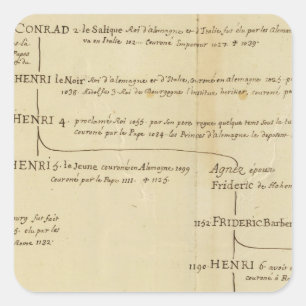 CONRAD 2. le Salique Roi d'alemagne et d'Italie, fut élu par les Aleman
va en Italie couronné Empereur 1027 ✝ 1039.
HENRI le Noir Roi d'alemagne et d'Italie, couronné en Alemagne
1038. Rodolfe 3 Roi du Bourgogne l'institue heritier, couronné
HENRI 4. proclamé Roi 1055. par son pere regne quelque tems sous la tu
couronné par le Pape 1084. les Princes d'alemagne le deposent
HENRI 5. le Jeune couronné en Alemagne 1099
couronné par le Pape 1111. ✝ 1125.
Agnez épouse
Frideric de Hohen
sut fait
élu par les
1132.
1152 FRIDERIC Barber
1190 HENRI 6. avoit é